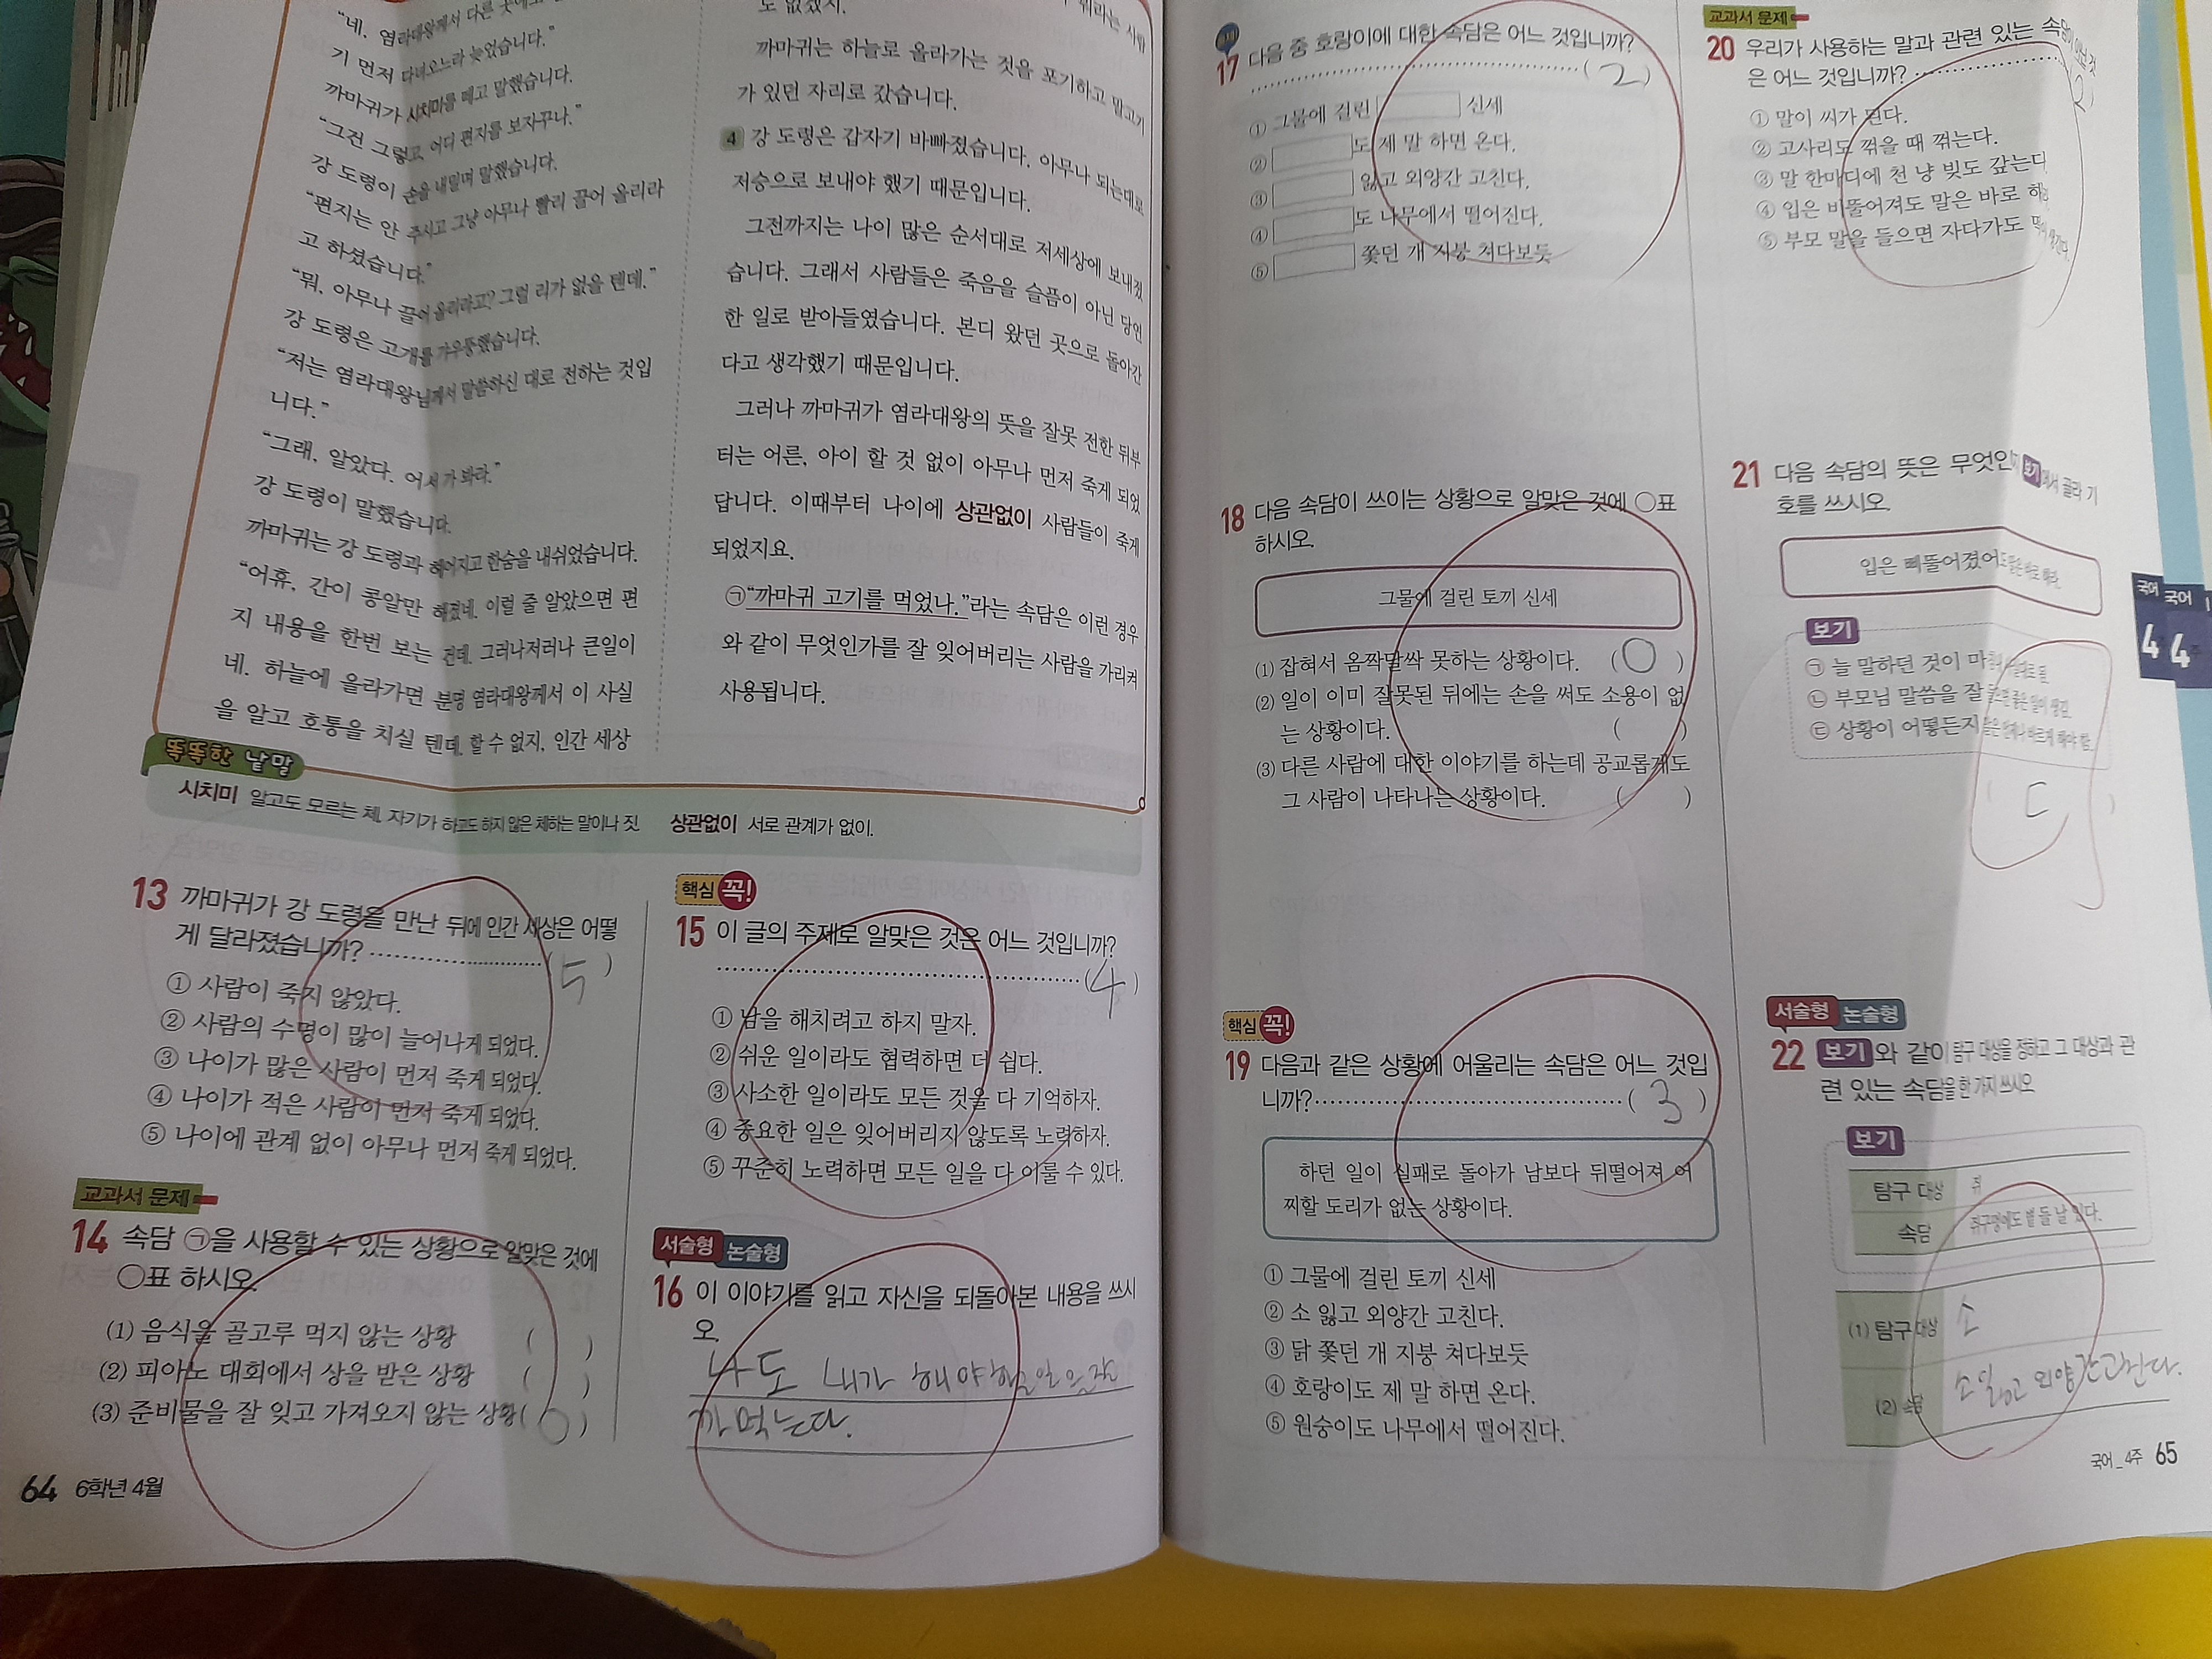 “네. 염라대왕께서 다른 곳에도
기 먼저 다녀오느라 늦었습니다.”
까마귀가 시치미를 떼고 말했습니다.
“그건 그렇고, 어디 편지를 보자꾸나.”
강 도령이 손을 내밀며 말했습니다.
“편지는 안 주시고 그냥 아무나 빨리 끌어 올리라
고 하셨습니다.”
“뭐, 아무나 끌어 올리라고? 그럴 리가 없을 텐데.”
강 도령은 고개를 갸우뚱했습니다.
“저는 염라대왕님께서 말씀하신 대로 전하는 것입
니다.”
“그래, 알았다. 어서 가 봐라.”
강 도령이 말했습니다.
까마귀는 강 도령과 헤어지고 한숨을 내쉬었습니다.
“어휴, 간이 콩알만 해졌네. 이럴 줄 알았으면 편
지 내용을 한번 보는 건데. 그러나저러나 큰일이
네. 하늘에 올라가면 분명 염라대왕께서 이 사실
을 알고 호통을 치실 텐데. 할 수 없지. 인간 세상
도 없겠지.
까마귀는 하늘로 올라가는 것을 포기하고 말고기
가 있던 자리로 갔습니다.
4 강 도령은 갑자기 바빠졌습니다. 아무나 되는대로
저승으로 보내야 했기 때문입니다.
그전까지는 나이 많은 순서대로 저세상에 보내졌
습니다. 그래서 사람들은 죽음을 슬픔이 아닌 당연
한 일로 받아들였습니다. 본디 왔던 곳으로 돌아간
다고 생각했기 때문입니다.
그러나 까마귀가 염라대왕의 뜻을 잘못 전한 뒤부
터는 어른, 아이 할 것 없이 아무나 먼저 죽게 되었
답니다. 이때부터 나이에 상관없이 사람들이 죽게
되었지요.
㉠“까마귀 고기를 먹었나.”라는 속담은 이런 경우
와 같이 무엇인가를 잘 잊어버리는 사람을 가리켜
사용됩니다.
똑똑한 낱말
시치미 알고도 모르는 체, 자기가 하고도 하지 않은 체하는 말이나 짓. 상관없이 서로 관계가 없이.
13 까마귀가 강 도령을 만난 뒤에 인간 세상은 어떻
게 달라졌습니까? (5)
① 사람이 죽지 않았다.
② 사람의 수명이 많이 늘어나게 되었다.
③ 나이가 많은 사람이 먼저 죽게 되었다.
④ 나이가 적은 사람이 먼저 죽게 되었다.
⑤ 나이에 관계 없이 아무나 먼저 죽게 되었다.
교과서 문제
14 속담 ㉠을 사용할 수 있는 상황으로 알맞은 것에
○표 하시오.
(1) 음식을 골고루 먹지 않는 상황 ( )
(2) 피아노 대회에서 상을 받은 상황 ( )
(3) 준비물을 잘 잊고 가져오지 않는 상황 (○)
핵심 꼭!
15 이 글의 주제로 알맞은 것은 어느 것입니까?
(4)
① 남을 해치려고 하지 말자.
② 쉬운 일이라도 협력하면 더 쉽다.
③ 사소한 일이라도 모든 것을 다 기억하자.
④ 중요한 일은 잊어버리지 않도록 노력하자.
⑤ 꾸준히 노력하면 모든 일을 다 이룰 수 있다.
서술형 논술형
16 이 이야기를 읽고 자신을 되돌아본 내용을 쓰시
오.
나도 내가 해야 할 일을 잘
까먹는다.
64 6학년 4월
17 다음 중 호랑이에 대한 속담은 어느 것입니까?
(2)
① 그물에 걸린 신세
② 도 제 말 하면 온다.
③ 잃고 외양간 고친다.
④ 도 나무에서 떨어진다.
⑤ 쫓던 개 지붕 쳐다보듯
18 다음 속담이 쓰이는 상황으로 알맞은 것에 ○표
하시오.
그물에 걸린 토끼 신세
(1) 잡혀서 옴짝달싹 못하는 상황이다. (○)
(2) 일이 이미 잘못된 뒤에는 손을 써도 소용이 없
는 상황이다. ( )
(3) 다른 사람에 대한 이야기를 하는데 공교롭게도
그 사람이 나타나는 상황이다. ( )
핵심 꼭!
19 다음과 같은 상황에 어울리는 속담은 어느 것입
니까? (3)
하던 일이 실패로 돌아가 남보다 뒤떨어져 어
찌할 도리가 없는 상황이다.
① 그물에 걸린 토끼 신세
② 소 잃고 외양간 고친다.
③ 닭 쫓던 개 지붕 쳐다보듯
④ 호랑이도 제 말 하면 온다.
⑤ 원숭이도 나무에서 떨어진다.
교과서 문제
20 우리가 사용하는 말과 관련 있는 속담이 아닌 것
은 어느 것입니까? (2)
① 말이 씨가 된다.
② 고사리도 꺾을 때 꺾는다.
③ 말 한마디에 천 냥 빚도 갚는다
④ 입은 비뚤어져도 말은 바로 해라
⑤ 부모 말을 들으면 자다가도 떡이 생긴다.
21 다음 속담의 뜻은 무엇인지 보기에서 골라 기
호를 쓰시오.
입은 삐뚤어졌어도 말은 바로 해라.
보기
㉠ 늘 말하던 것이 마침내 사실대로 됨.
㉡ 부모님 말씀을 잘 들으면 좋은 일이 생김.
㉢ 상황이 어떻든지 말은 언제나 바르게 해야 함.
(ㄷ)
서술형 논술형
22 보기와 같이 탐구 대상을 정하고 그 대상과 관
련 있는 속담을 한 가지 쓰시오.
보기
탐구 대상 쥐
속담 쥐구멍에도 볕 들 날 있다.
(1) 탐구 대상 소
(2) 속담 소 잃고 외양간 고친다.
국어 4주
국어_4주 65